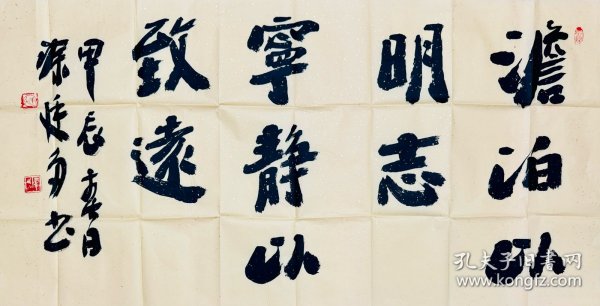 澹泊以
明志
寧静以
致遠
甲辰春日
孔夫子旧书网
www.kongfz.com